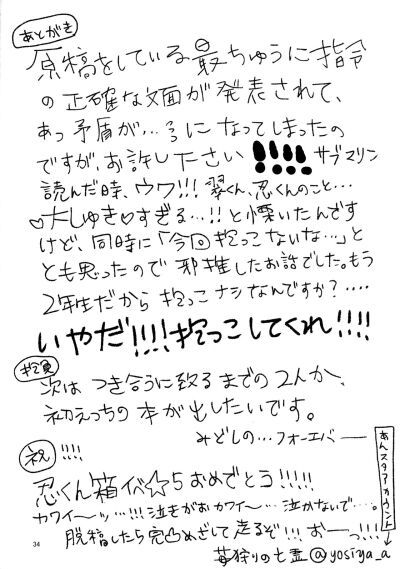 あとがき
原稿をしている最ちゅうに指令
の正確な文面が発表されて、
あっ矛盾が…ろ に なってしまったの
ですが、お許し下さい!!!! サブマリン
読んだ時、ウワ!!! 翠くん、忍くんのこと…
♡大しゅき♡すぎる…!! と慄いたんです
けど、同時に「今回抱っこないな…」と
とも思ったので 邪推したお話でした。もう
2年生だから抱っこナシなんですか?‥‥
いやだ!!!!抱っこしてくれ!!!!
抱負
次は つき合うに致るまでの2人か、
初えっちの本が出したいです。
みどしの…フォーエバー
祝 !!!!
忍くん箱イベ☆5おめでとう!!!!!
カワイ〜ッ…!!! 泣きがおカワイ〜… 泣かないで…。
脱稿したら完凸めざして走るぞ!!! おーっ!!!
あんスタアカウント
苺狩りの七霊@yosiya_a
34